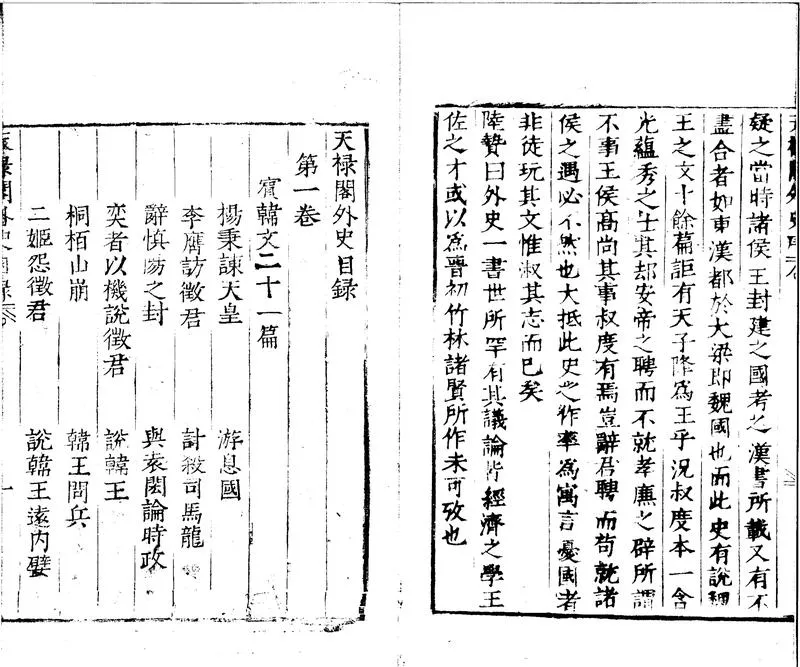 疑之當時諸侯王封建之國考之漢書所載又有不
盡合者如東漢都於大梁即魏國也而此史有說魏
王之文十餘篇詎有天子降為王乎況叔度本一含
光蘊秀之士其却安帝之聘而不就孝廉之辟所謂
不事王侯髙尚其事叔度有焉豈辭君聘而苟就諸
侯之遇必不然也大抵此史之作率為寓言憂國者
非徒玩其文惟淑其志而已矣
陸贄曰外史一書世所罕有其議論皆經濟之學王
佐之才或以為晉初竹林諸賢所作未可攷也
天祿閣外史目録
第一卷
賓韓文二十一篇
楊秉諫天皇 游息國
李膺訪徵君 計殺司馬龍
辭慎陽之封 與袁閎論時政
奕者以機說徵君 說韓王
桐栢山崩 韓王問兵
二姬怨徵君 說韓王遠内嬖
一